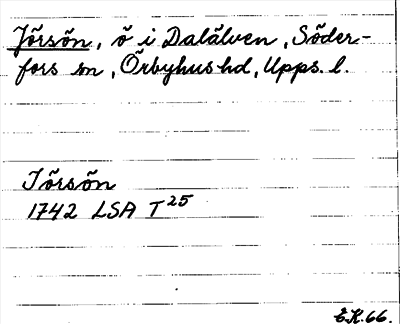 Jörsön, ö i Dalälven, Söder-
fors sn, Örbyhus hd, Upps. l.
Jörsön
1742 LSA T25
E.K. 66.